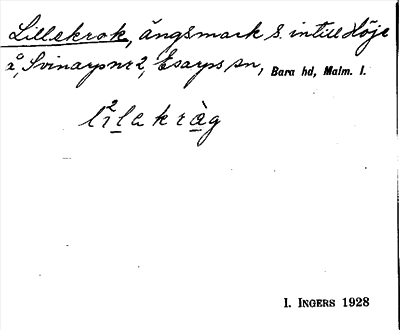 Lillekrok, ängsmark S. intill Höje
å, Svinarp nr 2, Esarps sn, Bara hd, Malm. l.
lı̀²lakràg
I. INGERS 1928